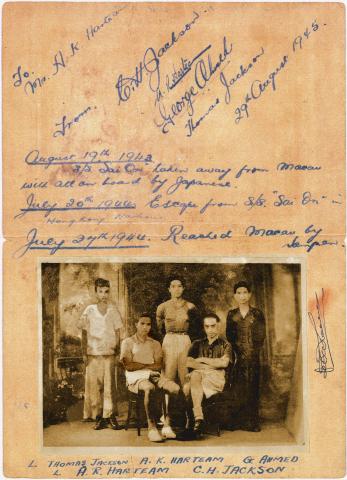 To.
Mr. A. K. Harteam
From.
C. H. Jackson.
George
Thomas Jackson
29th August 1945.
August 19th 1943
S/S "Sai On" taken away from Macau
with all on board by Japanese.
July 20th 1944 Escape from S/S "Sai On" in
Hongkong Harbour.
July 27th 1944. Reached Macau by
L THOMAS JACKSON A. K. HARTEAM G AHMED
L A. R. HARTEAM C. H. JACKSON